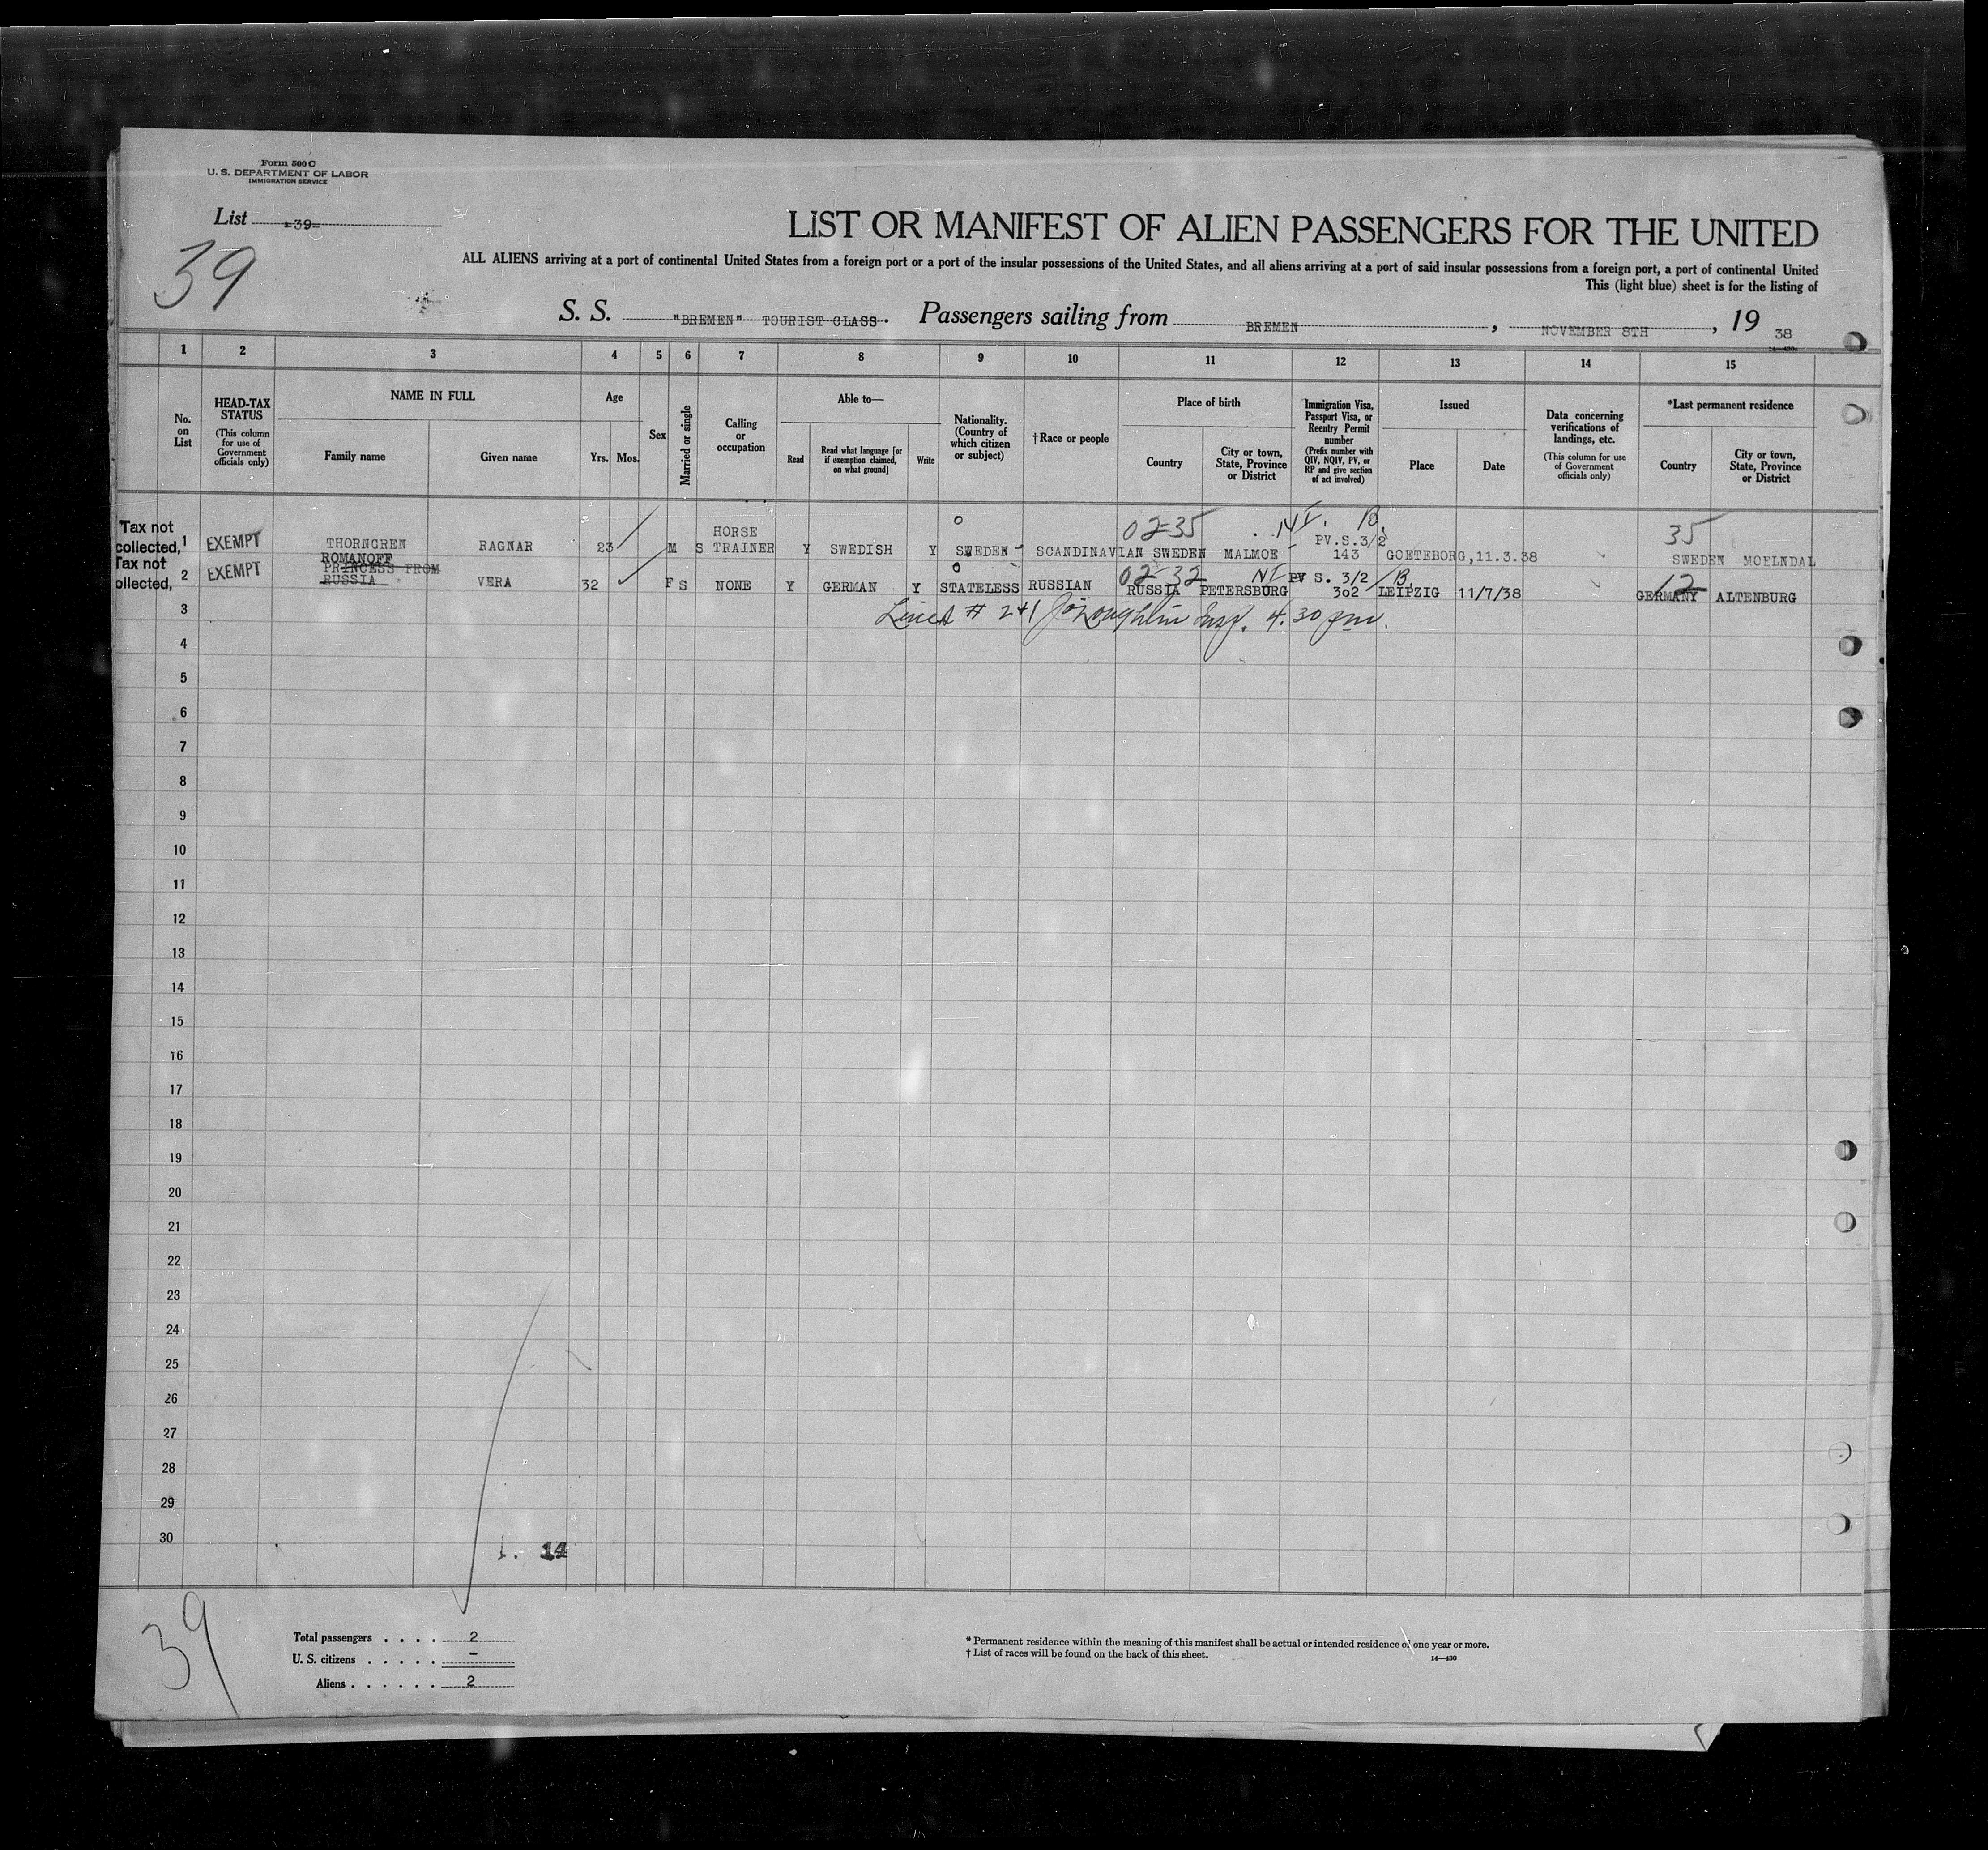 Form 500 C
U. S. DEPARTMENT OF LABOR
IMMIGRATION SERVICE
List -39-
39
LIST OR MANIFEST OF ALIEN PASSENGERS FOR THE UNITED
ALL ALIENS arriving at a port of continental United States from a foreign port or a port of the insular possessions of the United States, and all aliens arriving at a port of said insular possessions from a foreign port, a port of continental United
This (light blue) sheet is for the listing of
S. S. "BREMEN" TOURIST CLASS. Passengers sailing from BREMEN, NOVEMBER 8TH, 19 38
14-430
1 2 3 4 5 6 7 8 9 10 11 12 13 14 15
No. on List
HEAD-TAX STATUS (This column for use of Government officials only)
NAME IN FULL
Family name
Given name
Age
Yrs. Mos.
Sex
Married or single
Calling or occupation
Able to—
Read
Read what language [or if exemption claimed, on what ground]
Write
Nationality. (Country of which citizen or subject)
†Race or people
Place of birth
Country
City or town, State, Province or District
Immigration Visa, Passport Visa, or Reentry Permit number (Prefix number with QIV, NQIV, PV, or RP and give section of act involved)
Issued
Place
Date
Data concerning verifications of landings, etc. (This column for use of Government officials only)
*Last permanent residence
Country
City or town, State, Province or District
02-35 NI. B. 35
Tax not collected, 1 EXEMPT THORNGREN RAGNAR 23 M S HORSE TRAINER Y SWEDISH Y SWEDEN SCANDINAVIAN SWEDEN MALMOE PV.S.3/2 143 GOETEBORG,11.3.38 SWEDEN MOELNDAL
02-32 NI B 12
Tax not collected, 2 EXEMPT ROMANOFF PRINCESS FROM RUSSIA VERA 32 F S NONE Y GERMAN Y STATELESS RUSSIAN RUSSIA PETERSBURG PV S. 3/2 302 LEIPZIG 11/7/38 GERMANY ALTENBURG
3 Lines # 2+1 J O'Loughlin Insp. 4.30 pm.
4
5
6
7
8
9
10
11
12
13
14
15
16
17
18
19
20
21
22
23
24
25
26
27
28
29
30
14
39
Total passengers . . . . 2
U. S. citizens . . . . . –
Aliens . . . . . . 2
* Permanent residence within the meaning of this manifest shall be actual or intended residence of one year or more.
† List of races will be found on the back of this sheet.
14—430